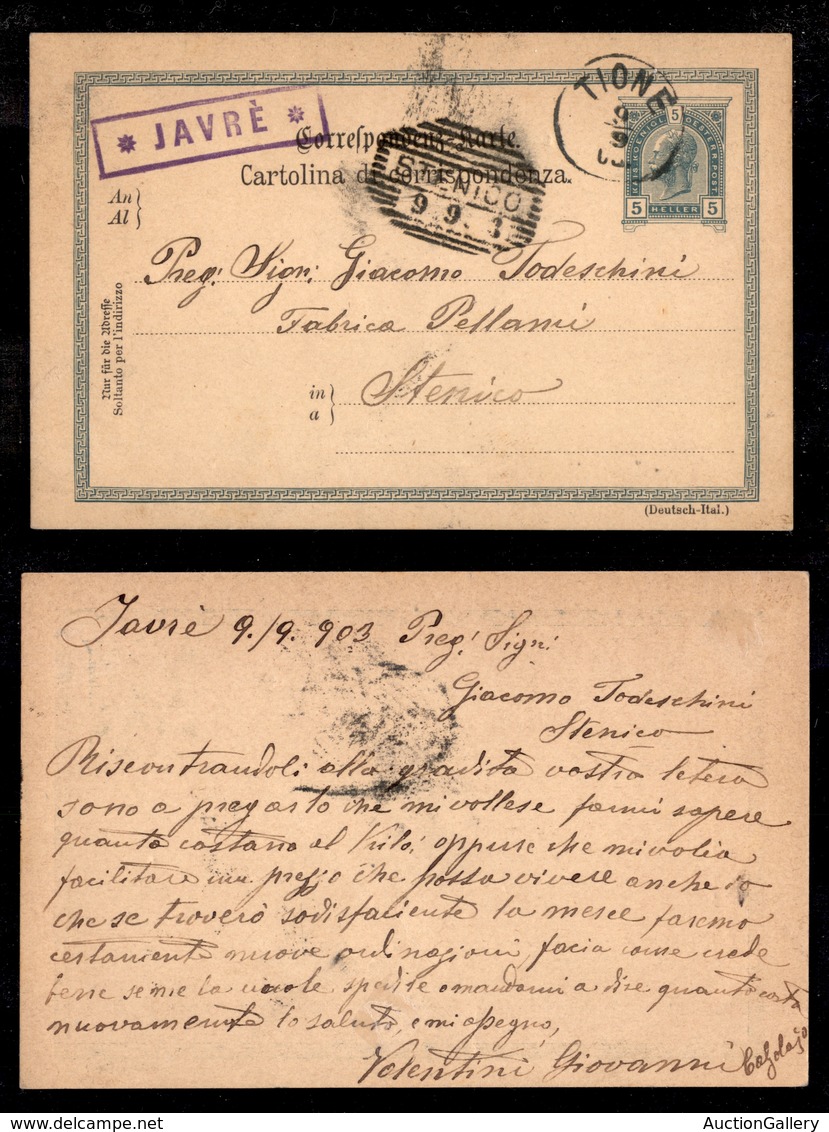 * JAVRÈ *
TIONE
9
9
Correspondenz-Karte.
Cartolina di corrispondenza.
STENICO
9 9 3
KAIS KOENIGL 5 OESTERR POST
5 HELLER 5
An
Al
Preg: Sign: Giacomo Todeschini
Fabrica Pellami
in
a
Stenico
Nur für die Adresse
Soltanto per l'indirizzo
(Deutsch-Ital.)
Javrè 9./9. 903 Preg: Sign:
Giacomo Todeschini
Stenico
Riscontrandoli alla gradita vostra letera
sono a pregarlo che mi vollese farmi sapere
quanto costano al Kilo: oppure che mi volia
facilitare un prezzo che possa vivere anche io
che se troverò sodisfaciente la merce faremo
certamente nuove ordinazioni, facia come crede
bene se me la vuole spedire o mandarmi a dire quanto costa
nuovamente lo saluto, e mi assegno,
Valentini Giovanni Calzolajo
AuctionGallery